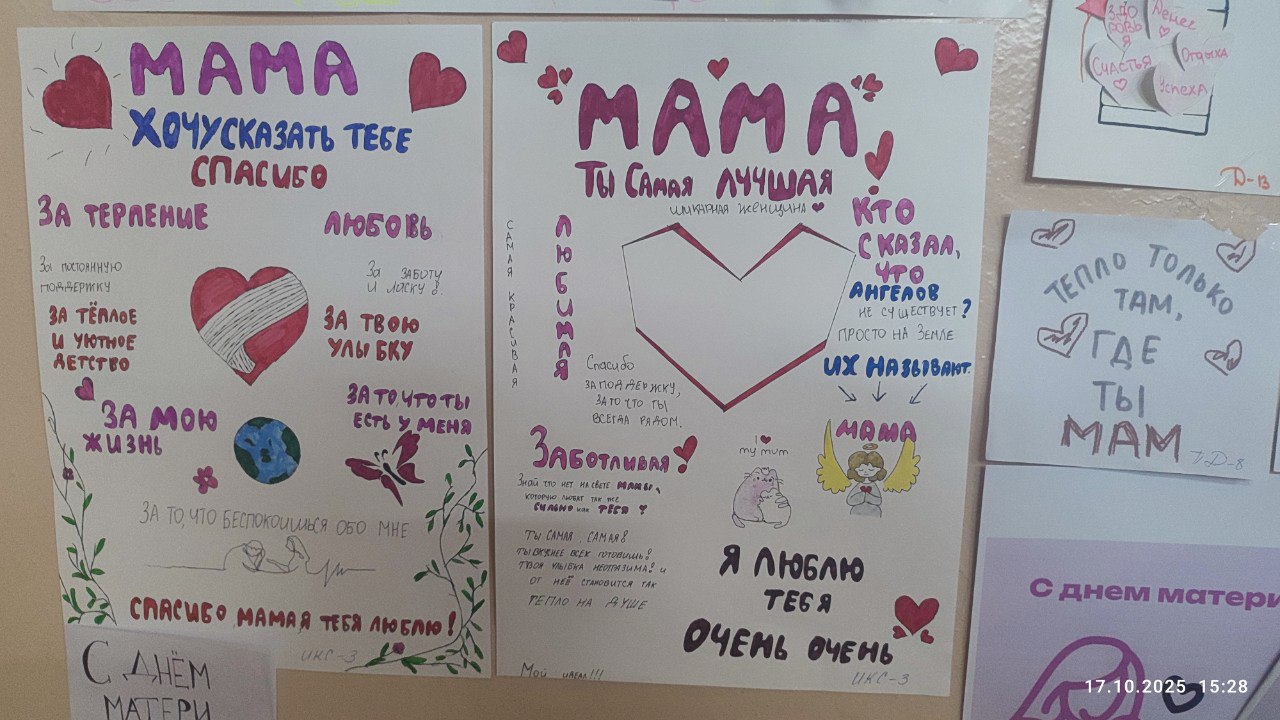 МАМА
ХОЧУ СКАЗАТЬ ТЕБЕ
СПАСИБО
ЗА ТЕРПЕНИЕ
ЛЮБОВЬ
За постоянную
поддержку
За заботу
и ласку
ЗА ТЁПЛОЕ
И УЮТНОЕ
ДЕТСТВО
ЗА ТВОЮ
УЛЫБКУ
ЗА МОЮ
ЖИЗНЬ
ЗА ТО ЧТО ТЫ
ЕСТЬ У МЕНЯ
ЗА ТО, ЧТО БЕСПОКОИШЬСЯ ОБО МНЕ
СПАСИБО МАМА Я ТЕБЯ ЛЮБЛЮ!
ИКС-3
С ДНЁМ
МАТЕРИ
МАМА
ТЫ САМАЯ ЛУЧШАЯ
ШИКАРНАЯ ЖЕНЩИНА
САМАЯ КРАСИВАЯ
ЛЮБИМАЯ
КТО
СКАЗАЛ,
ЧТО
АНГЕЛОВ
НЕ СУЩЕСТВУЕТ?
ПРОСТО НА ЗЕМЛЕ
ИХ НАЗЫВАЮТ
МАМА
Спасибо
ЗА ПОДДЕРЖКУ,
ЗА ТО ЧТО ТЫ
ВСЕГДА РЯДОМ.
ЗАБОТЛИВАЯ!
Знай что нет на свете мамы,
которую любят так же
сильно как тебя
I
my mum
ТЫ САМАЯ, САМАЯ
ТЫ ВКУСНЕЕ ВСЕХ ГОТОВИШЬ!
ТВОЯ УЛЫБКА НЕОТРАЗИМА! И
ОТ НЕЁ СТАНОВИТСЯ ТАК
ТЕПЛО НА ДУШЕ
Я ЛЮБЛЮ
ТЕБЯ
ОЧЕНЬ ОЧЕНЬ
Мой идеал!!!
ИКС-3
ЗДО
РОВЬ
Я
Денег
Счастья
Отдыха
Успеха
Д-13
ТЕПЛО ТОЛЬКО
ТАМ,
ГДЕ
ТЫ
МАМ
ТД-8
С днем матери
17.10.2025 15:28